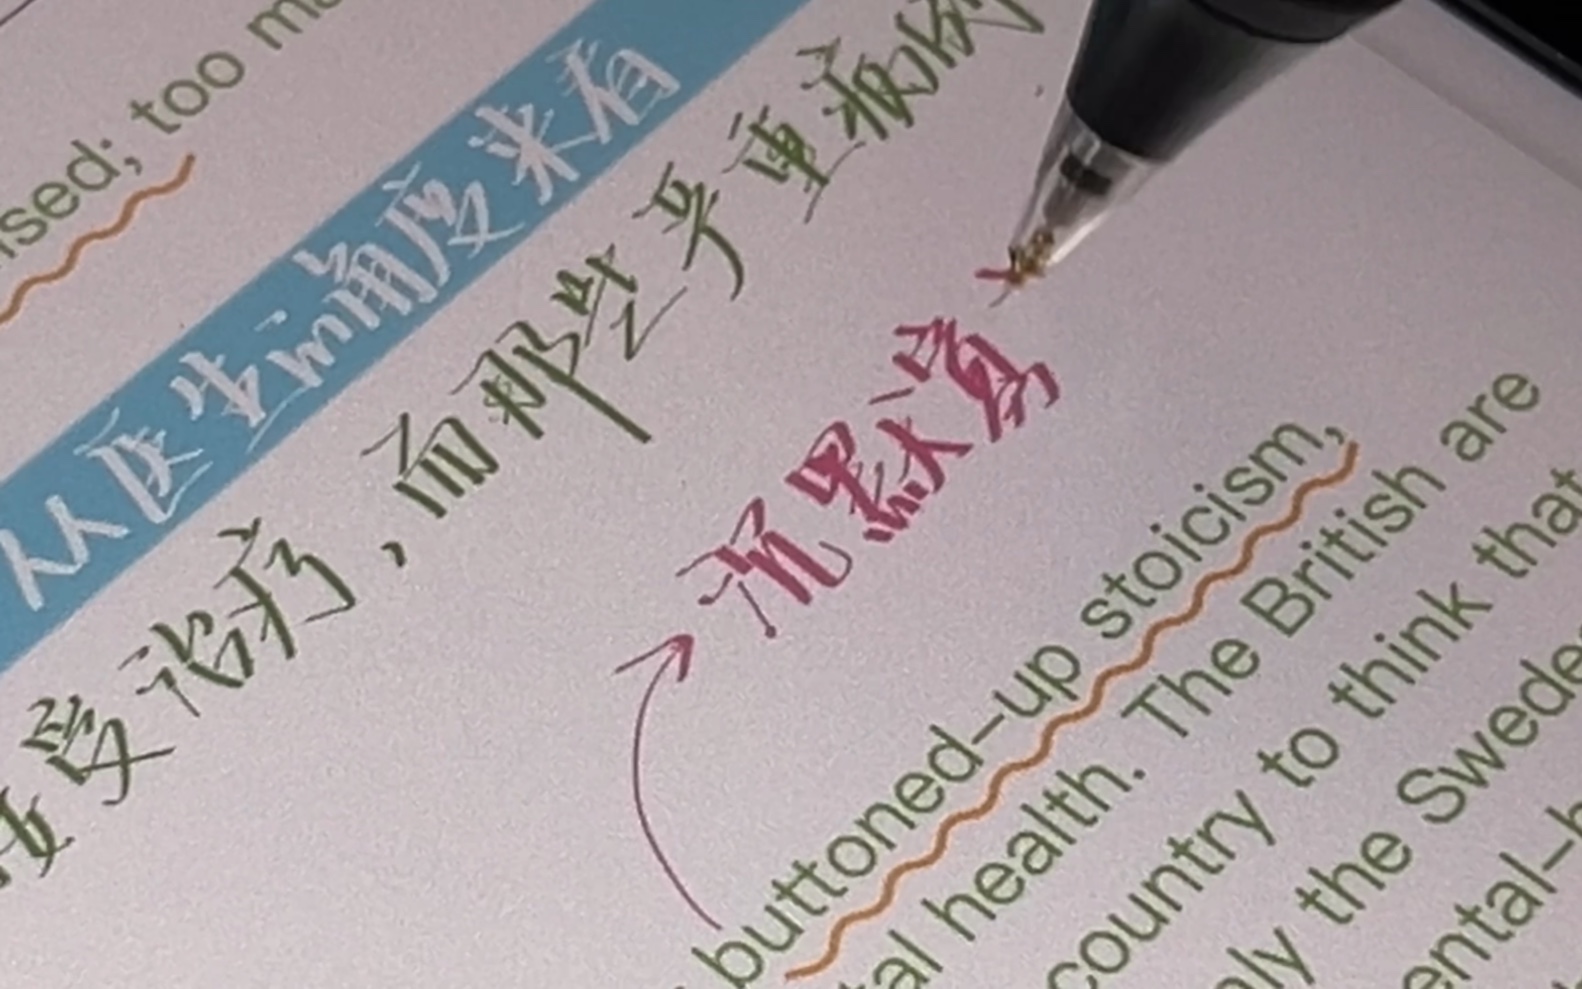 ised; too ma
从医生的角度来看
接受治疗，而那些严重病例
沉默寡
buttoned-up stoicism,
tal health. The British are
country to think that
nly the Swede
ental-h